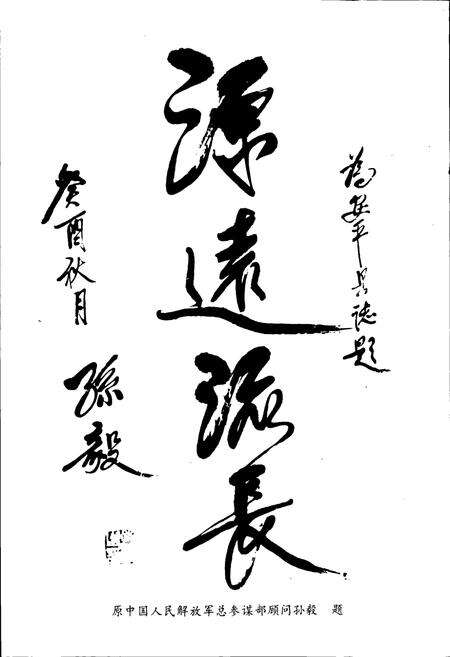 為安平县誌题
源遠流長
癸酉秋月
孫毅
原中国人民解放军总参谋部顾问孙毅 题